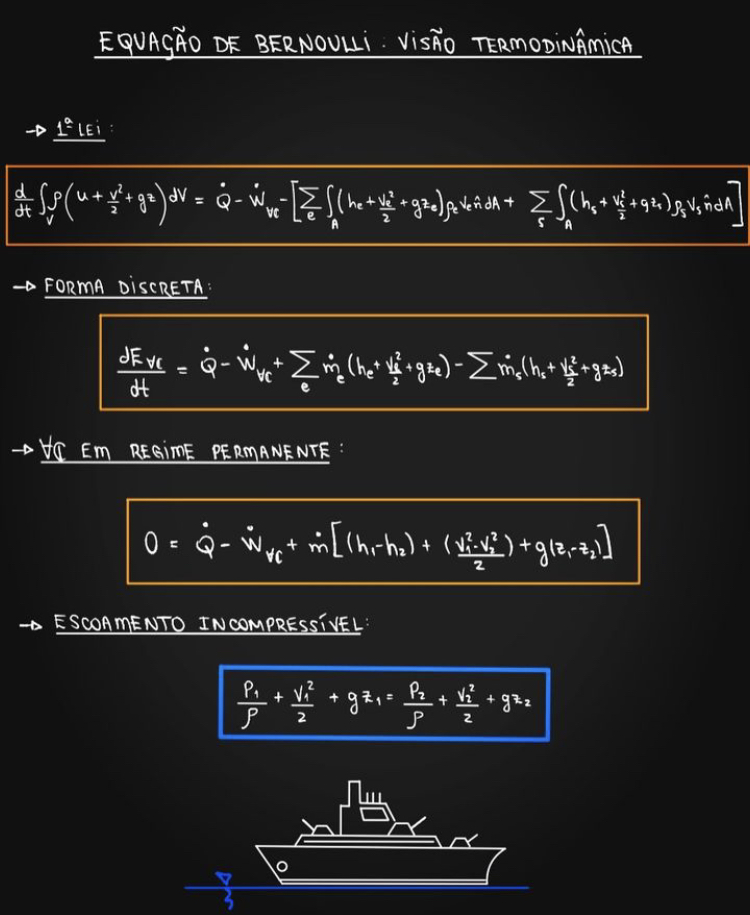 EQUAÇÃO DE BERNOULLI : VISÃO TERMODINÂMICA
→ 1ª LEI :
d/dt ∫_V ρ(u + v²/2 + gz) dV = Q̇ - Ẇ_VC - [∑_e ∫_A (he + Ve²/2 + gze) ρe Ve n̂ dA + ∑_s ∫_A (hs + Vs²/2 + gzs) ρs Vs n̂ dA]
→ FORMA DISCRETA:
dE_VC/dt = Q̇ - Ẇ_VC + ∑_e ṁe (he + Ve²/2 + gze) - ∑ ṁs (hs + Vs²/2 + gzs)
→ VC EM REGIME PERMANENTE :
0 = Q̇ - Ẇ_VC + ṁ[(h1-h2) + (V1²-V2²/2) + g(z1-z2)]
→ ESCOAMENTO INCOMPRESSÍVEL:
P1/ρ + V1²/2 + gz1 = P2/ρ + V2²/2 + gz2